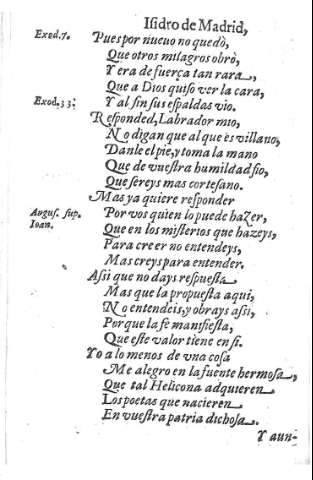 Isidro de Madrid,
Exod. 7. Pues por nueuo no quedò,
Que otros milagros obrò,
Y era de fuerça tan rara,
Que a Dios quiso ver la cara,
Exod. 33: Y al fin sus espaldas vio.
Responded, Labrador mio,
No digan que al que es villano,
Danle el pie, y toma la mano
Que de vuestra humildad fio,
Que sereys mas cortesano.
Mas ya quiere responder
Augus. sup. Por vos quien lo puede hazer,
Ioan. Que en los misterios que hazeys,
Para creer no entendeys,
Mas creys para entender.
Assi que no days respuesta
Mas que la propuesta aqui,
No entendeis, y obrays assi,
Porque la fè manifiesta,
Que este valor tiene en si.
Yo a lo menos de vna cosa
Me alegro en la fuente hermosa,
Que tal Helicona adquieren
Los poetas que nacieren
En vuestra patria dichosa.
Y aun-